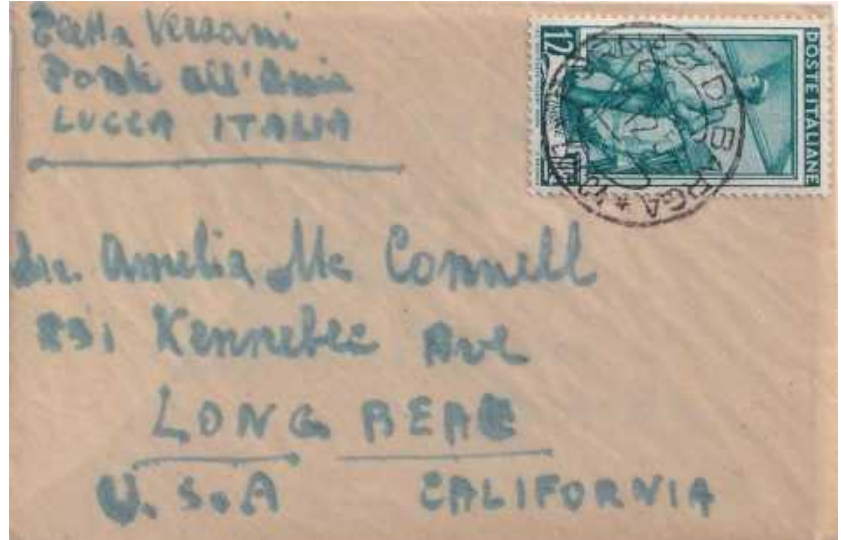 Versani
Ponte all'Ania
LUCCA ITALIA
12
POSTE ITALIANE
DI BARGA *
Amelia Mc Connell
831 Kennebec Ave
LONG BEAC
U.S.A CALIFORNIA